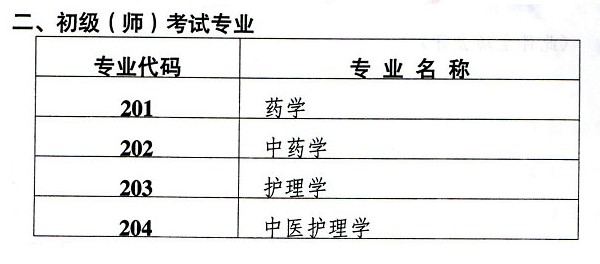 二、初级（师）考试专业
专业代码 专业名称
201 药学
202 中药学
203 护理学
204 中医护理学